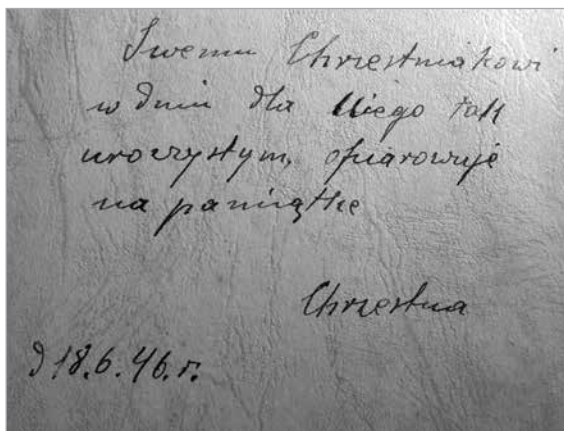 Swemu Chrzestniakowi
w dniu dla Niego tak
uroczystym, ofiarowuje
na pamiątkę
Chrzestna
d 18.6.46.r.